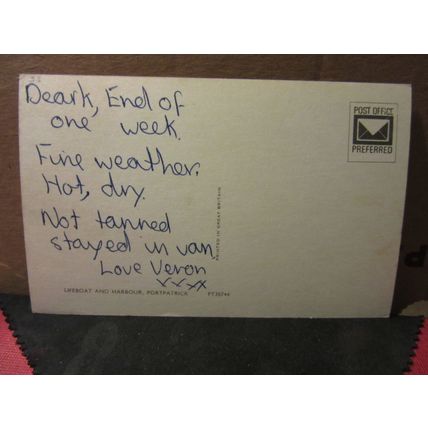 Deark, End of
one week.
Fine weather.
Hot, dry.
Not tanned
stayed in van
Love Veron
xxxx
LIFEBOAT AND HARBOUR, PORTPATRICK PT35744
PRINTED IN GREAT BRITAIN
POST OFFICE
PREFERRED